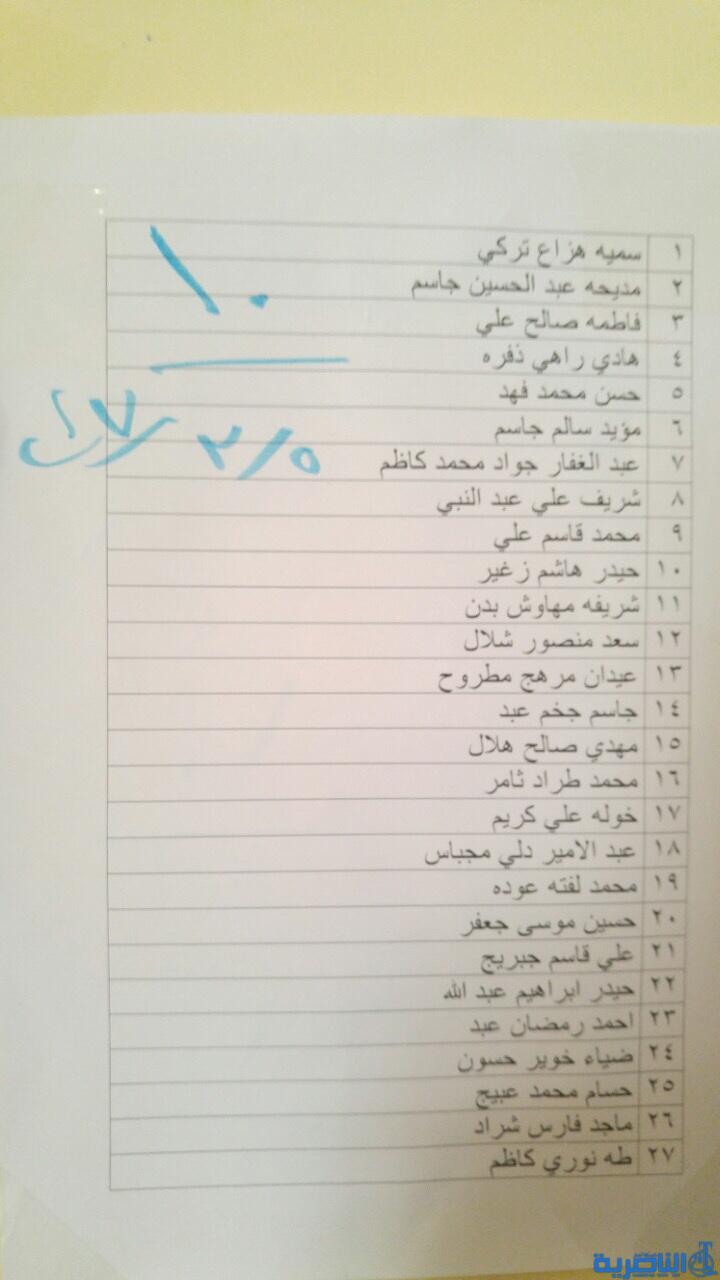 ١ سميه هزاع تركي
٢ مديحه عبد الحسين جاسم
٣ فاطمه صالح علي
٤ هادي راهي ذفره
٥ حسن محمد فهد
٦ مؤيد سالم جاسم
٧ عبد الغفار جواد محمد كاظم
٨ شريف علي عبد النبي
٩ محمد قاسم علي
١٠ حيدر هاشم زغير
١١ شريفه مهاوش بدن
١٢ سعد منصور شلال
١٣ عيدان مرهج مطروح
١٤ جاسم جخم عبد
١٥ مهدي صالح هلال
١٦ محمد طراد ثامر
١٧ خوله علي كريم
١٨ عبد الامير دلي مجباس
١٩ محمد لفته عوده
٢٠ حسين موسى جعفر
٢١ علي قاسم جبريج
٢٢ حيدر ابراهيم عبد الله
٢٣ احمد رمضان عبد
٢٤ ضياء خوير حسون
٢٥ حسام محمد عبيج
٢٦ ماجد فارس شراد
٢٧ طه نوري كاظم
١٠
الناصرية